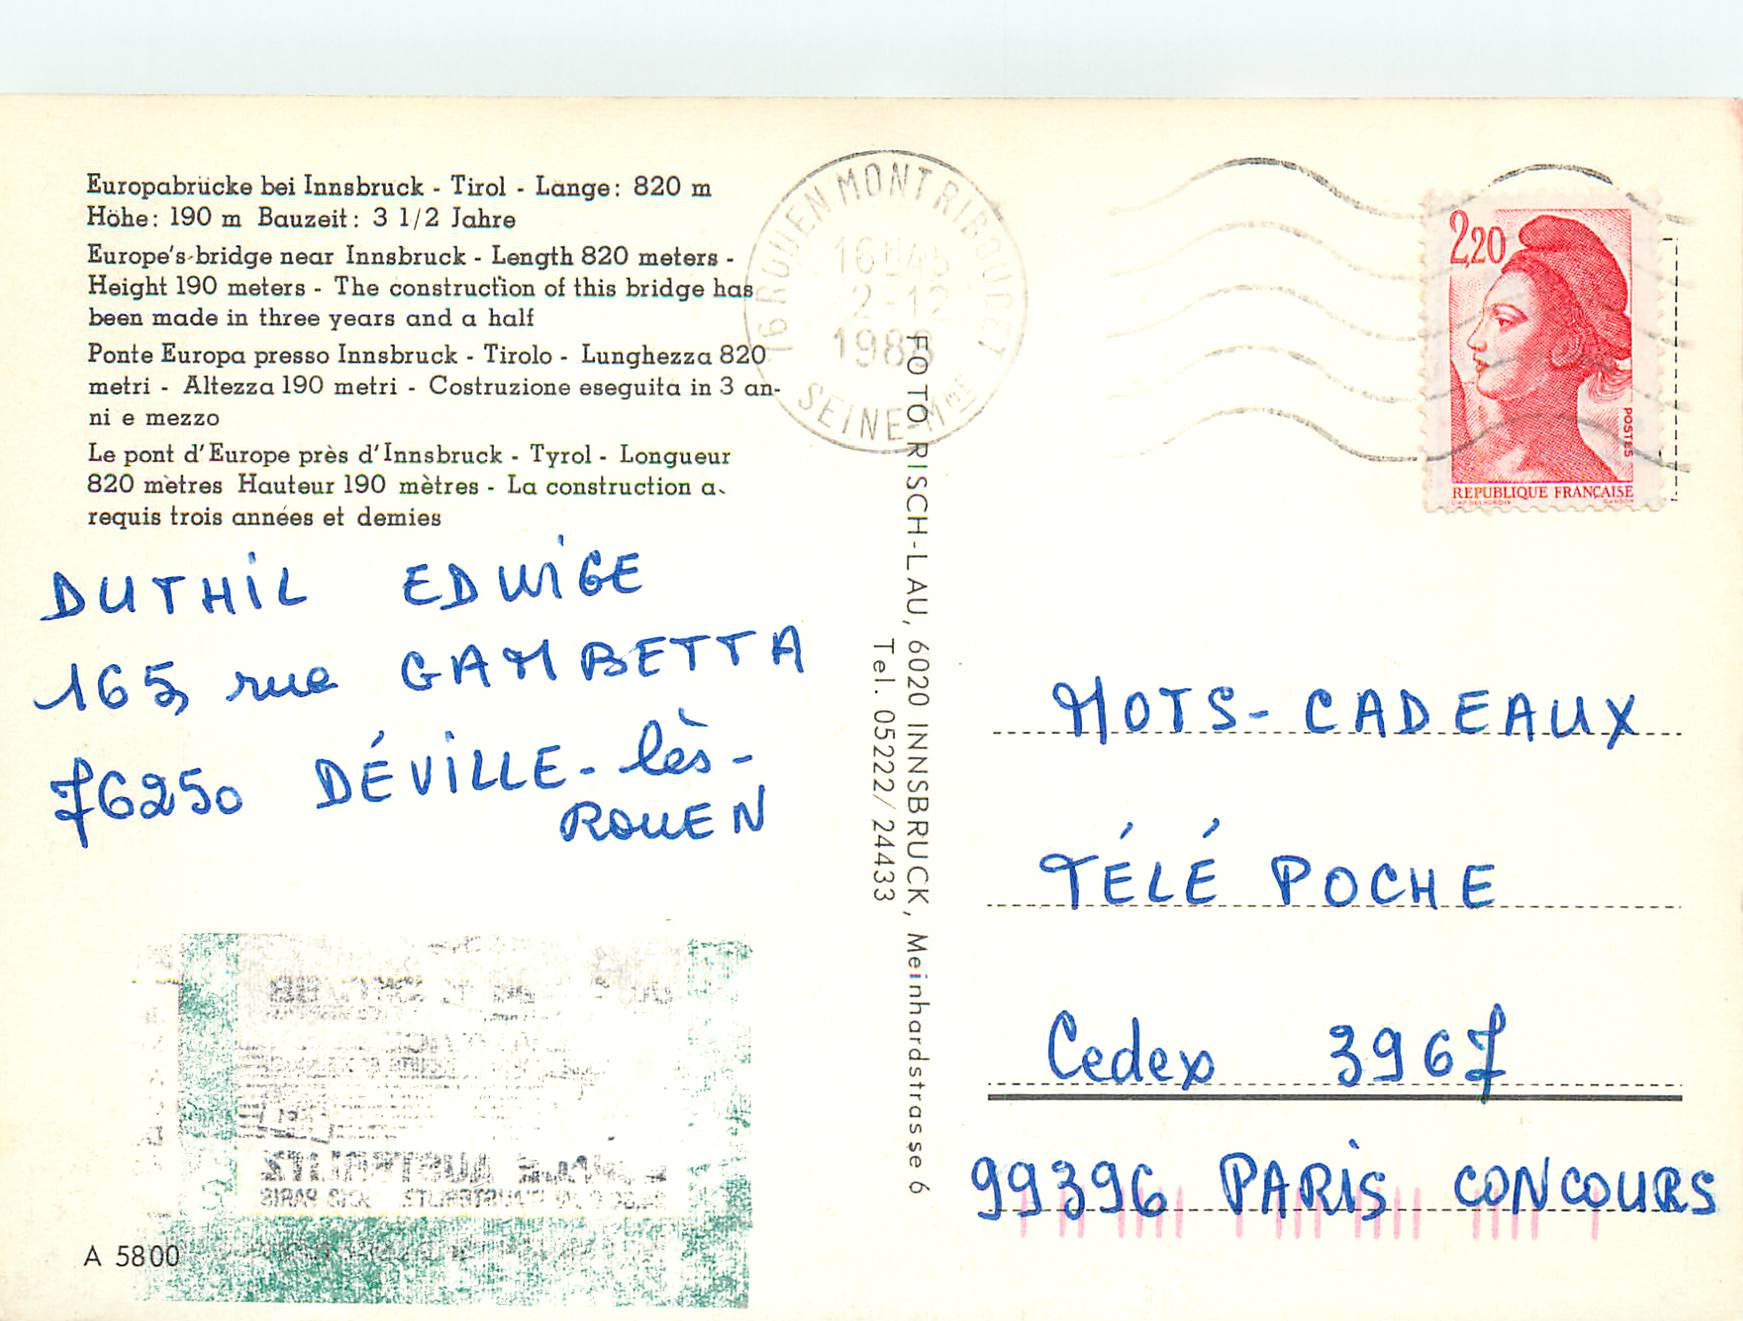 Europabrücke bei Innsbruck - Tirol - Länge: 820 m
Höhe: 190 m Bauzeit: 3 1/2 Jahre
Europe's bridge near Innsbruck - Length 820 meters -
Height 190 meters - The construction of this bridge has
been made in three years and a half
Ponte Europa presso Innsbruck - Tirolo - Lunghezza 820
metri - Altezza 190 metri - Costruzione eseguita in 3 an-
ni e mezzo
Le pont d'Europe près d'Innsbruck - Tyrol - Longueur
820 mètres Hauteur 190 mètres - La construction a
requis trois années et demies
DUTHIL EDWIGE
165, rue GAMBETTA
76250 DÉVILLE-lès-
ROUEN
A 5800
76 ROUEN MONT RIBOUDET
16H45
2-12
SEINE-Mme
FOTO RISCH-LAU, 6020 INNSBRUCK, Meinhardstrasse 6
Tel. 05222/24433
2,20
POSTES
REPUBLIQUE FRANÇAISE
MOTS-CADEAUX
TÉLÉ POCHE
Cedex 3967
99396 PARIS CONCOURS